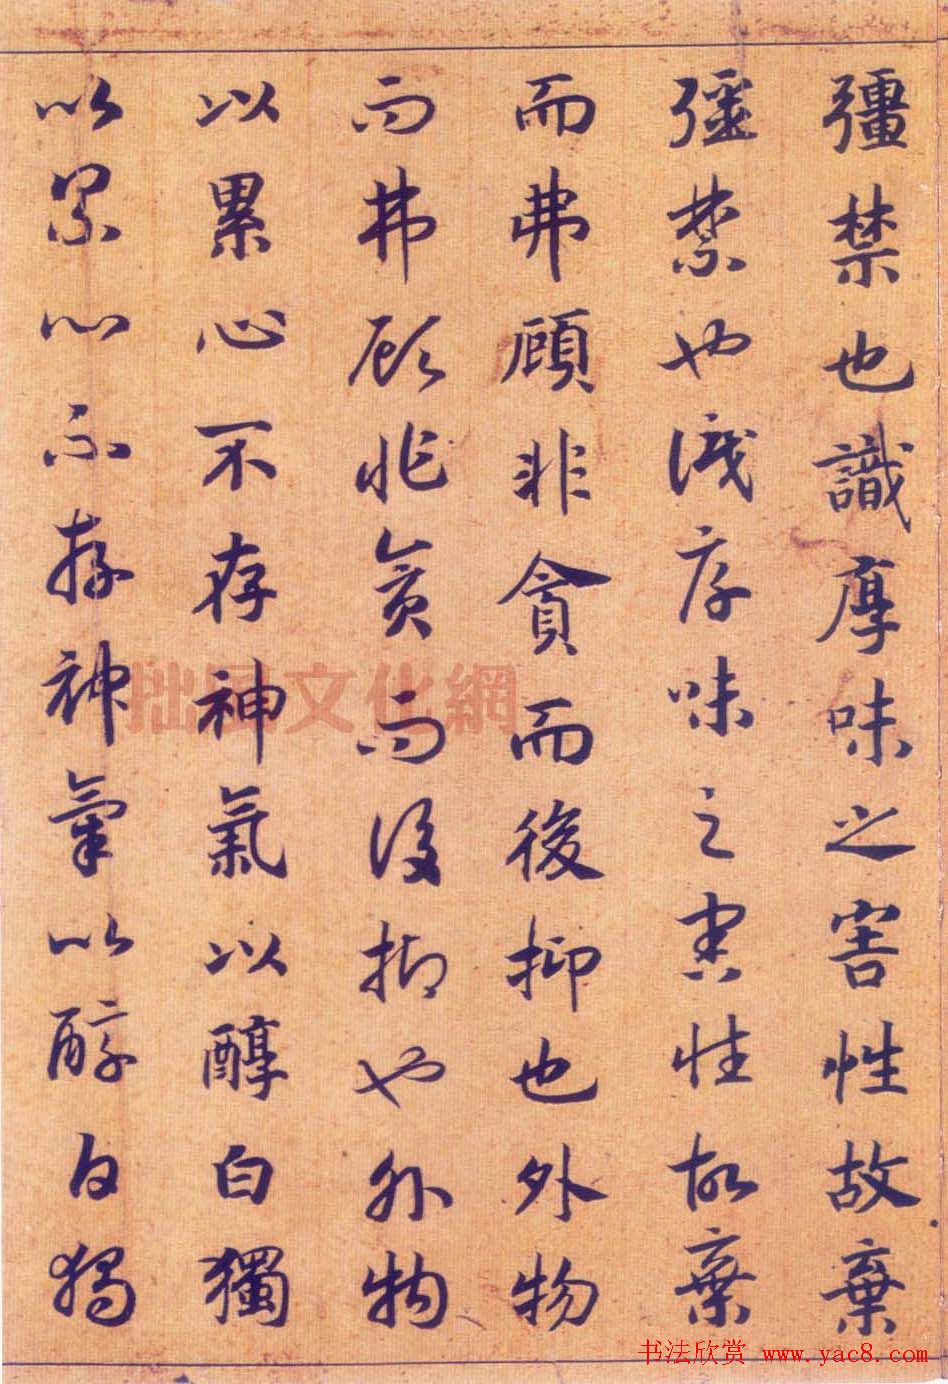 彊禁也識厚味之害性故棄
彊禁也識厚味之害性故棄
而弗顧非貪而後抑也外物
而弗顧非貪而後抑也外物
以累心不存神氣以醇白獨
以累心不存神氣以醇白獨
拙風文化網
书法欣赏 www.yac8.com